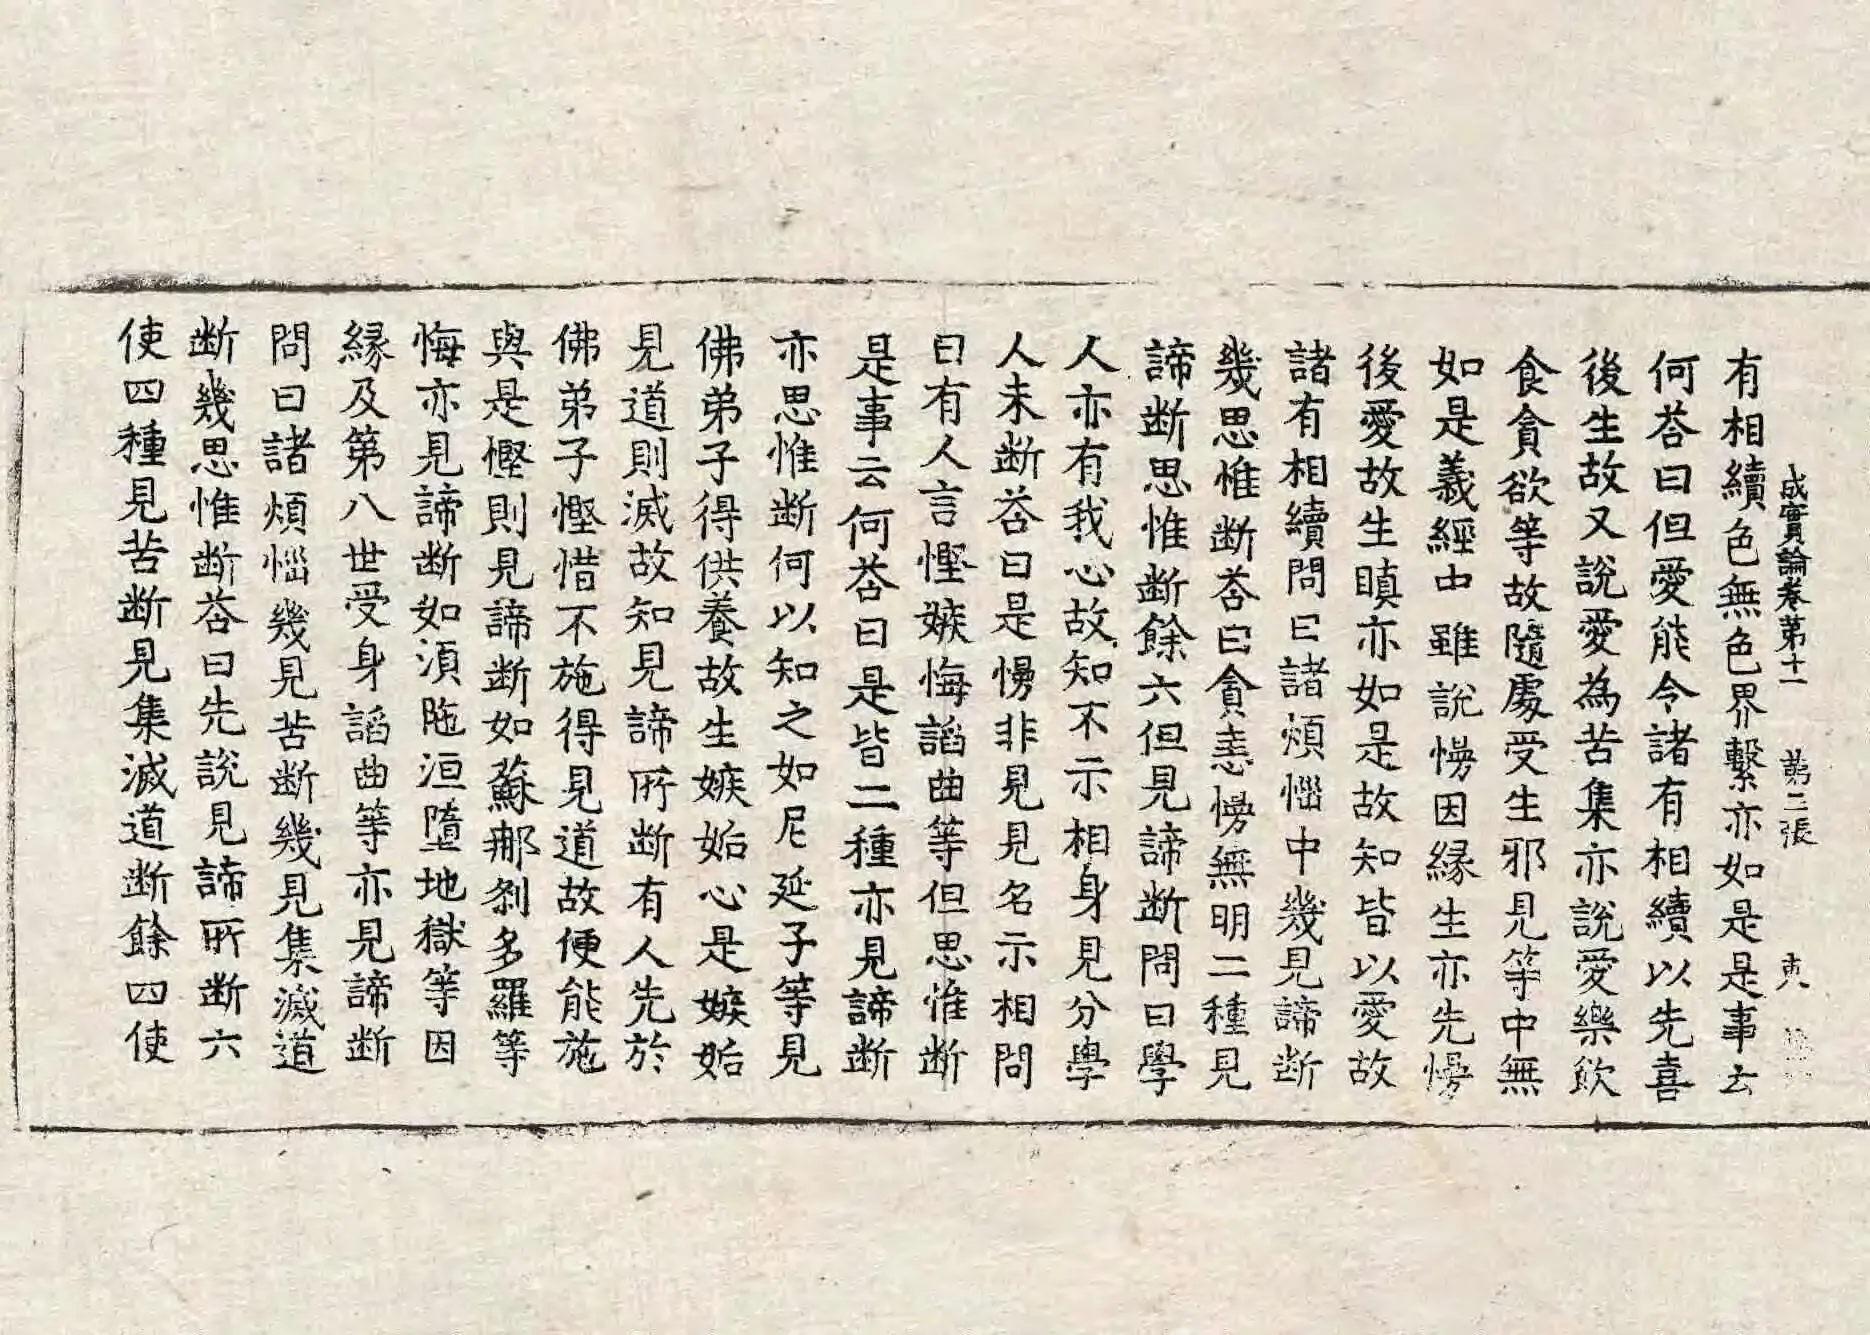 成實論卷第十一 第二張 夷
有相續色無色界繫亦如是是事云
何荅曰但愛能令諸有相續以先喜
後生故又說愛為苦集亦說愛樂飲
食貪欲等故隨處受生邪見等中無
如是義經中雖說慢因緣生亦先慢
後愛故生瞋亦如是故知皆以愛故
諸有相續問曰諸煩惱中幾見諦断
幾思惟断荅曰貪恚慢無明二種見
諦断思惟断餘六但見諦断問曰學
人亦有我心故知不示相身見分學
人未断荅曰是慢非見見名示相問
曰有人言慳嫉悔諂曲等但思惟断
是事云何荅曰是皆二種亦見諦断
亦思惟断何以知之如尼延子等見
佛弟子得供養故生嫉妬心是嫉妬
見道則滅故知見諦所断有人先於
佛弟子慳惜不施得見道故便能施
與是慳則見諦断如蘇那剎多羅等
悔亦見諦断如湏陁洹墮地獄等因
緣及第八世受身諂曲等亦見諦断
問曰諸煩惱幾見苦断幾見集滅道
断幾思惟断荅曰先說見諦所断六
使四種見苦断見集滅道断餘四使